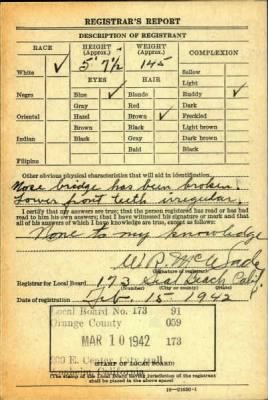 REGISTRAR'S REPORT
DESCRIPTION OF REGISTRANT
RACE HEIGHT (Approx.) WEIGHT (Approx.) COMPLEXION
White ✓ 5' 7½ 145 Sallow
EYES HAIR Light
Negro Blue ✓ Blonde Ruddy ✓
Gray Red Dark
Oriental Hazel Brown ✓ Freckled
Brown Black Light brown
Indian Black Gray Dark brown
Bald Black
Filipino
Other obvious physical characteristics that will aid in identification
Nose bridge has been broken.
Lower front teeth irregular.
I certify that my answers are true; that the person registered has read or has had read
to him his own answers; that I have witnessed his signature or mark and that
all of his answers of which I have knowledge are true, except as follows:
None to my knowledge
W. P. McWade
(Signature of registrar)
Registrar for Local Board 173 Seal Beach Calif.
(Number) (City or county) (State)
Date of registration Feb. 15 1942
Local Board No. 173 91
Orange County 059
MAR 10 1942 173
E. Center, City Hall
California
(STAMP OF LOCAL BOARD)
(The stamp of the Local Board having jurisdiction of the registrant
shall be placed in the above space)